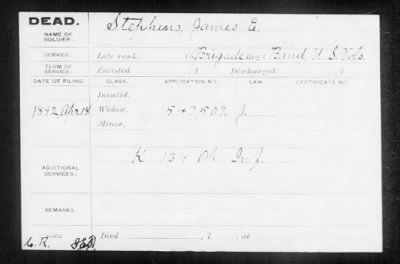 DEAD.
NAME OF SOLDIER: Stephens, James E.
SERVICE: Late rank, Brigade Band U.S. Vols.
TERM OF SERVICE: Enlisted , 1 Discharged , 1
DATE OF FILING. CLASS. APPLICATION NO. LAW. CERTIFICATE NO.
Invalid,
1892 Apr. 18 Widow, 547,507 J.
Minor,
ADDITIONAL SERVICES: K 134 Oh. Inf.
REMARKS:
C. R. Died , 1 , at